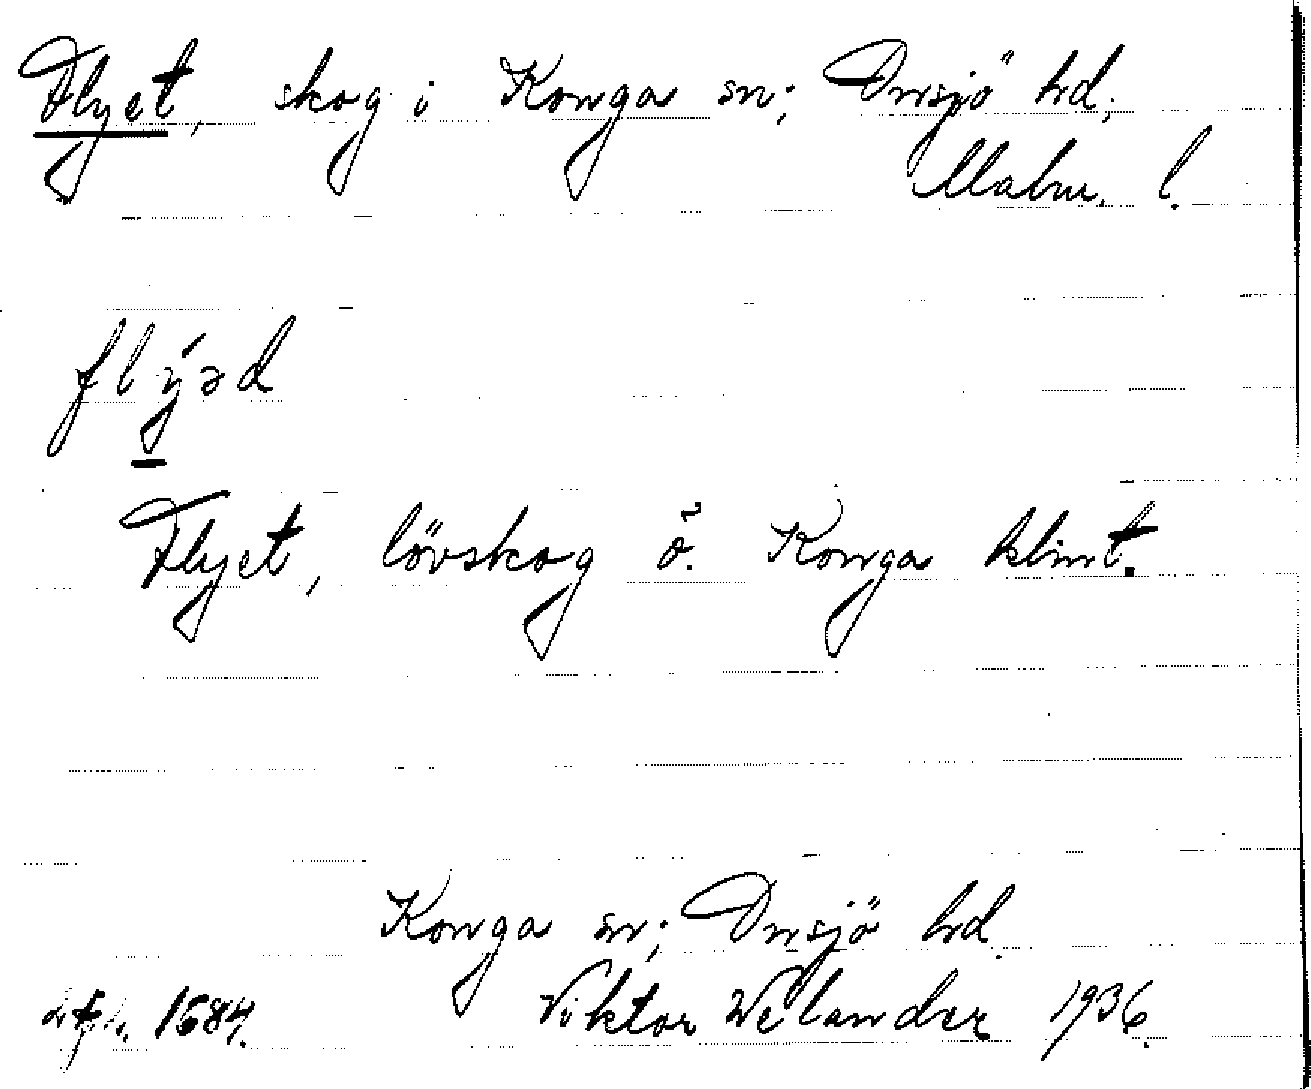 Flyet, skog i Konga sn; Onsjö hd;
Malm. l.
flýəd
Flyet, lövskog ö. Konga klint.
Konga sn; Onsjö hd.
Viktor Welander 1936.
1684.